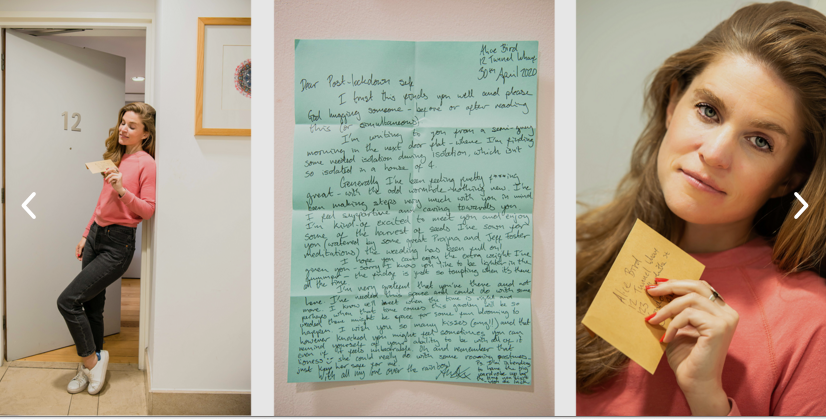 12
Alice Bird
12 Tunnel Wharf
30th April 2020
Dear Post-lockdown self
I trust this finds you well and please
God hugging someone - before or after reading
this (or simultaneously).
I'm writing to you from a semi-grey
morning in the next door flat - where I'm finding
some needed isolation during isolation, which isn't
so isolated in a house of 4.
Generally I've been feeling pretty
great - with the odd wormhole - nothing new I've
been making steps very much with you in mind
I feel supportive and caring towards you
I'm kind of excited to meet you and enjoy
some of the harvest of seeds I've sown for
you (watered by some great Prajna and Jeff Foster
meditations) the weeding has been full on!
I hope you can enjoy the extra weight I've
given you - sorry! I know you like to be lighter in the
summer - the pudding is just so tempting when it's there
all the time.
I'm very jealous that you're there and not
here I've needed this space and could do with some
more I know well when the time is right and
perhaps when that time comes this
there might be space for some
happen I wish you so many kisses (any!!) and that
however knackered you maybe feel sometimes you can
remind yourself of your ability to be with all of it
even if it feels unbearable. Oh and remember that
she could really do with some
just keep her safe for me
With all my love over the rainbow
Alice Bird
12 Tunnel Wharf